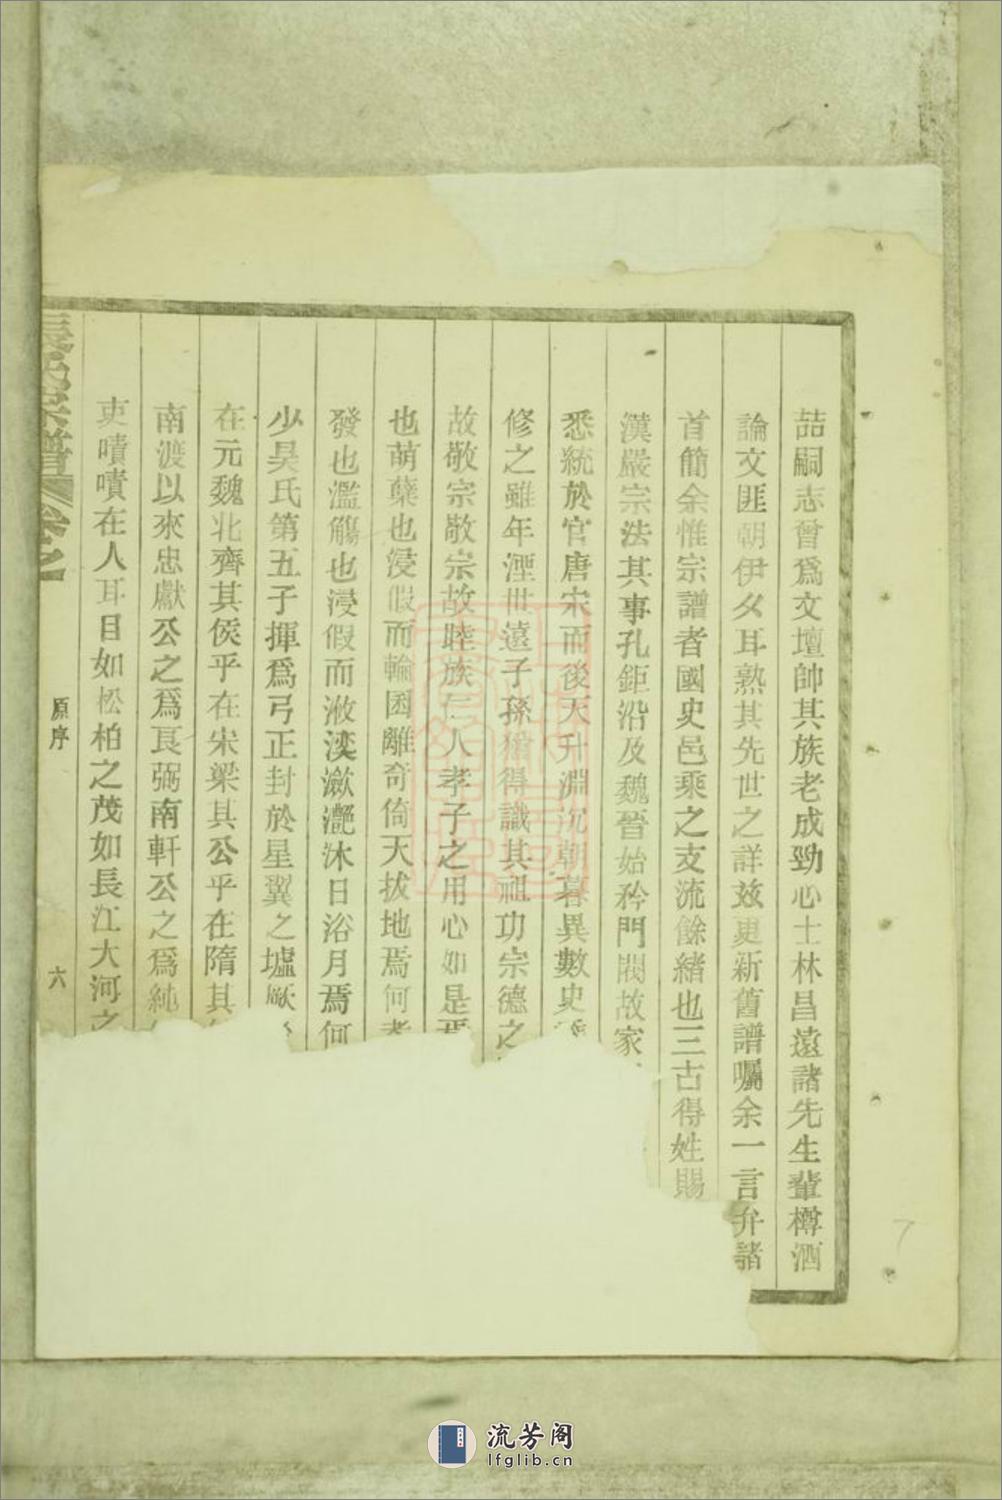 喆嗣志曾爲文壇帥其族老成勁心士林昌遠諸先生輩樽酒
論文匪朝伊夕耳熟其先世之詳玆更新舊譜囑余一言弁諸
首簡余惟宗譜者國史邑乘之支流餘緒也三古得姓賜
漢嚴宗法其事孔鉅沿及魏晉始矜門閥故家
悉統於官唐宋而後天升淵沉朝暮異數史
修之雖年湮世遠子孫猶得識其祖功宗德之
故敬宗敬宗故睦族仁人孝子之用心如是焉
也萌蘖也浸假而輪囷離奇倚天拔地焉何
發也濫觴也浸假而潋灧沐日浴月焉何
少昊氏第五子揮爲弓正封於星翼之墟厥
在元魏北齊其侯乎在宋梁其公乎在隋其
南渡以來忠獻公之爲良弼南軒公之爲純
吏嘖嘖在人耳目如松柏之茂如長江大河之
張氏宗譜 卷之一
原序
六
7
流芳阁
lfglib.cn